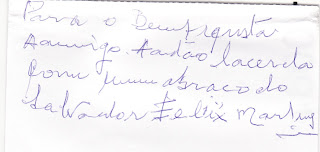 Para o Benfiquista
Amigo Aadão lacerda
Com um abraço do
Salvador Felix Martins